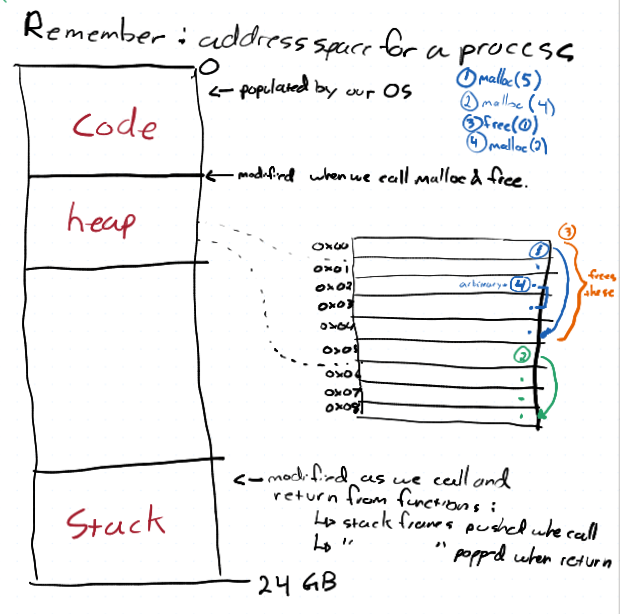 Remember: address space for a process
0
← populated by our OS
① malloc(5)
② malloc(4)
③ free(①)
④ malloc(2)
Code
← modified when we call malloc & free.
heap
0x00
0x01
0x02
0x03
0x04
0x05
0x06
0x07
0x08
①
③
arbitrary
④
frees
these
②
← modified as we call and
return from functions:
↳ stack frames pushed whe call
↳ " " popped when return
Stack
24 GB